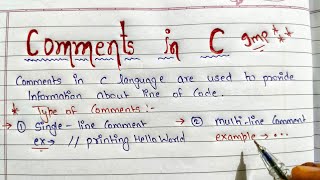 Comments in C Imp **
Comments in C language are used to provide
Information about line of Code.
* Type of Comments :-
→ ① Single-line Comment → ② multi-line Comment
ex → // printing Hello World example → ...